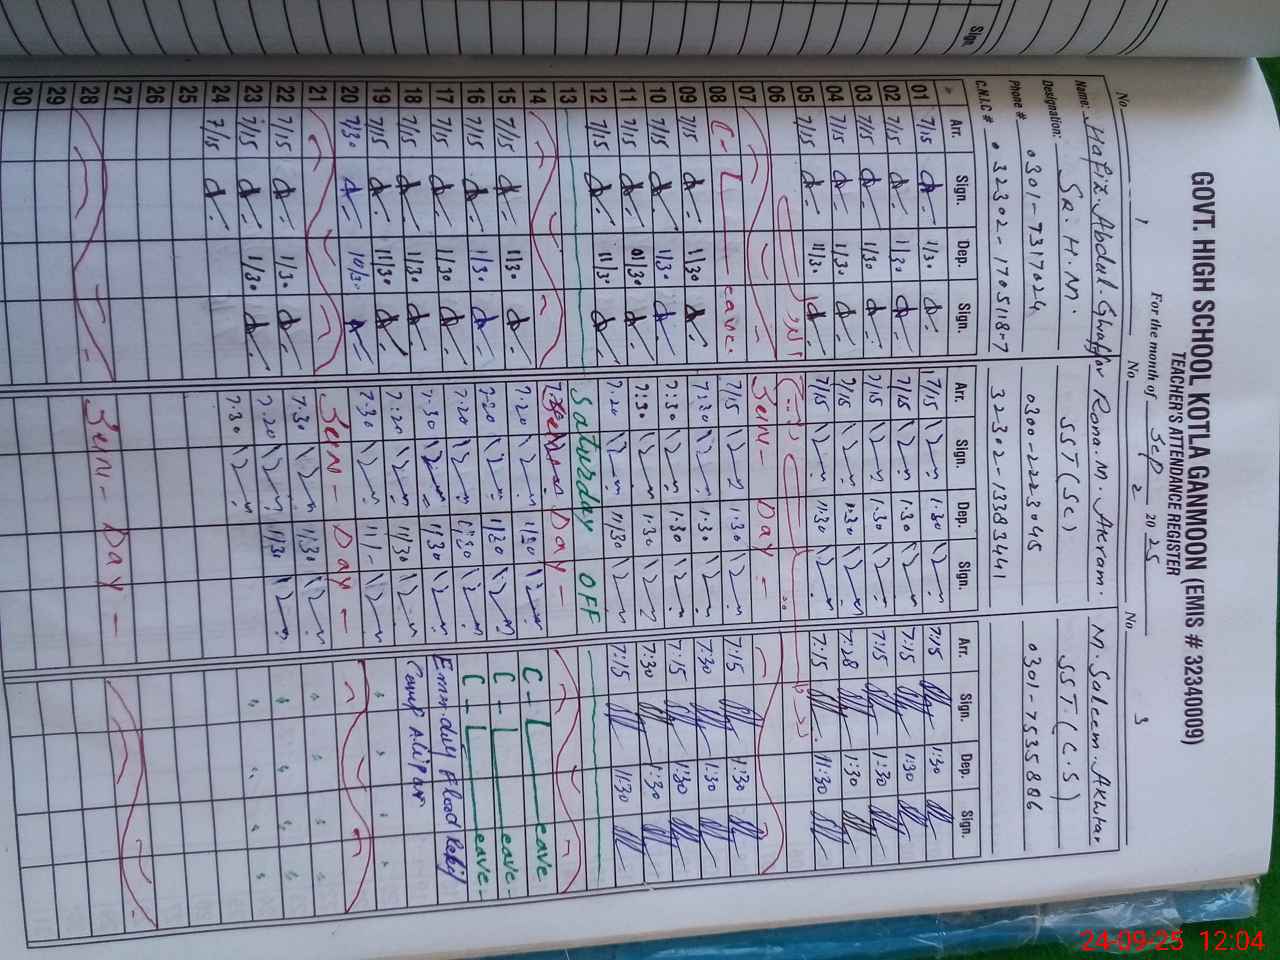 GOVT. HIGH SCHOOL KOTLA GANMOON (EMIS # 32340009)
TEACHER'S ATTENDANCE REGISTER
For the month of Sep 2025
No 1 No 2 No 3
Name: Hafiz Abdul Ghaffar Rana. M. Akram. M. Saleem Akhtar
Designation: Sr. H. M. SST (Sc) SST (C.S)
Phone # 0301-7317024 0300-2223045 0301-7535886
C.N.I.C # 32302-1705118-7 32302-13383441
Arr. Sign. Dep. Sign. Arr. Sign. Dep. Sign. Arr. Sign. Dep. Sign.
01 7/15 1/30 7/15 1:30 7:15 1:30
02 7/15 1/30 7/15 1:30 7:15 1:30
03 7/15 1/30 7/15 1:30 7:15 1:30
04 7/15 1/30 7/15 1:30 7:28 1:30
05 7/15 11/30 7/15 11:30 7:15 11:30
06
07 Sun - Day -
08 C - Leave. 7/15 1:30 7:15 1:30
09 7/15 1/30 7:30 1:30 7:30 1:30
10 7/15 1/30 7:30 1:30 7:15 1:30
11 7/15 01/30 7:30 1:30 7:30 1:30
12 7/15 11/30 7:20 11/30 7:15 11:30
13 Saturday OFF
14 Sun Day -
15 7/15 1/30 7.20 1/30 C - Leave
16 7/15 1/30 7.20 1/30 C - Leave -
17 7/15 1/30 7.20 1:30 C - Leave -
18 7/15 1/30 7.30 1/30 Flood Relief
19 7/15 11/30 7:20 11/30 Camp Alipur
20 7/30 10/30 7.30 11/-
21 Sun - Day -
22 7/15 1/30 7.30 1/30
23 7/15 1/30 7.20 1/30
24 7/15 7.30
25
26
27
28 Sun - Day -
29
30
Sign
24-09-25 12:04